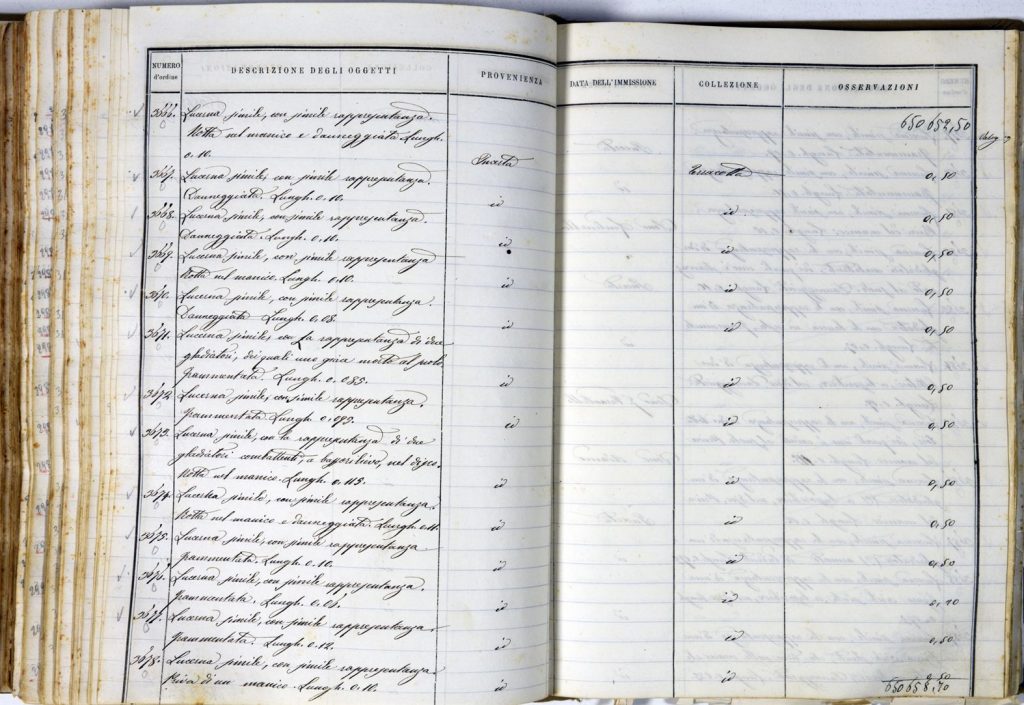 NUMERO d'ordine DESCRIZIONE DEGLI OGGETTI PROVENIENZA DATA DELL'IMMISSIONE COLLEZIONE OSSERVAZIONI
650 652,50
3666. Lucerna simile, con simile rappresentanza.
Rotta nel manico e danneggiata. Lungh.
0.10. Incerta Terracotta 0,50
3667. Lucerna simile, con simile rappresentanza.
Danneggiata. Lungh. 0.10. id id 0,50
3668. Lucerna simile, con simile rappresentanza.
Danneggiata. Lungh. 0.10. id id 0,50
3669. Lucerna simile, con simile rappresentanza
Rotta nel manico. Lungh. 0.10. id 0,50
3670. Lucerna simile, con simile rappresentanza.
Danneggiata. Lungh. 0.08. id id 0,50
3671. Lucerna simile, con la rappresentanza di due
gladiatori, dei quali uno giace morto al suolo
Frammentata. Lungh. 0.085. id id 0,50
3672. Lucerna simile, con simile rappresentanza.
Frammentata Lungh. 0.095. id id 0,50
3673. Lucerna simile, con la rappresentanza di due
gladiatori combattenti, a bassorilievo, nel disco
Rotta nel manico. Lungh. 0.115. id id 0,50
3674. Lucerna simile, con simile rappresentanza.
Rotta nel manico e danneggiata. Lungh. id id 0,50
3675. Lucerna simile, con simile rappresentanza
Frammentata. Lungh. 0.10. id id 0,50
3676. Lucerna simile, con simile rappresentanza.
Frammentata. Lungh. id id
3677. Lucerna simile, con simile rappresentanza.
Frammentata. Lungh. 0.12. id id 0,50
3678. Lucerna simile, con simile rappresentanza.
Priva di un manico. Lungh. 0.10. id id 0,50
650 658,70